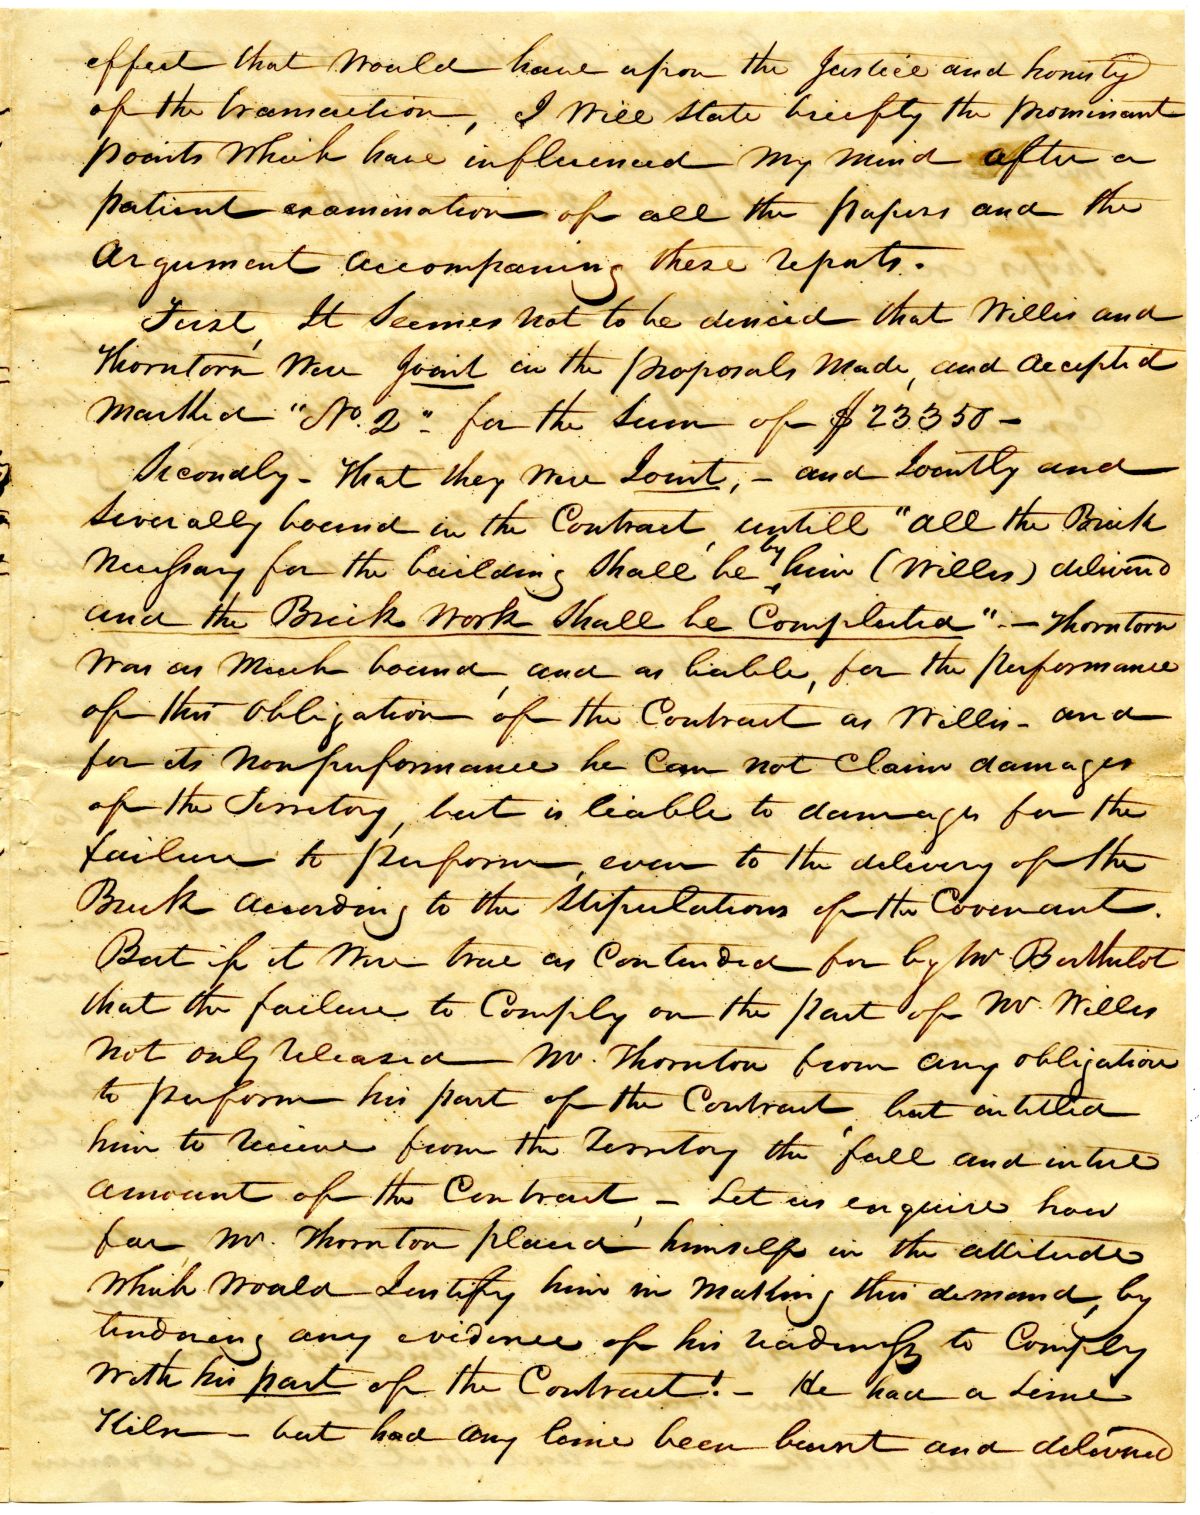 effect that would have upon the Justice and honisty
of the transaction, I will state briefly the prominant
points which have influenced my mind after a
patient examination of all the papers and the
Argument accompaning these reports.
First, It Seemes not to be denied that Willis and
Thorntorn were Joint in the proposals made, and accepted
marked "No. 2". for the Sum of $23350 -
Secondly - That they were Joint, - and Jointly and
Severally bound in the Contract, untill "all the Brick
necessary for the building shall be by him (Willis) delivered
and the Brick work shall be Completed" - Thorntorn
was as much bound, and as liable, for the performance
of this obligation of the Contract as Willis - and
for its nonperformance he can not claim damages
of the Territory, but is liable to damages for the
failure to perform, even to the delivery of the
Brick according to the stipulations of the Covenant.
But if it were true as contended for by Mr Barthelot
that the failure to Comply on the part of Mr. Willis
not only released Mr. Thornton from any obligation
to perform his part of the Contract, but intitled
him to receive from the Territory the full and intire
amount of the Contract, - Let us enquire how
far Mr. Thornton placed himself in the attitude
which would Justify him in making this demand, by
tendering any evidence of his readiness to Comply
with his part of the Contract! - He had a Lime
Kiln - but had any lime been burnt and delivered